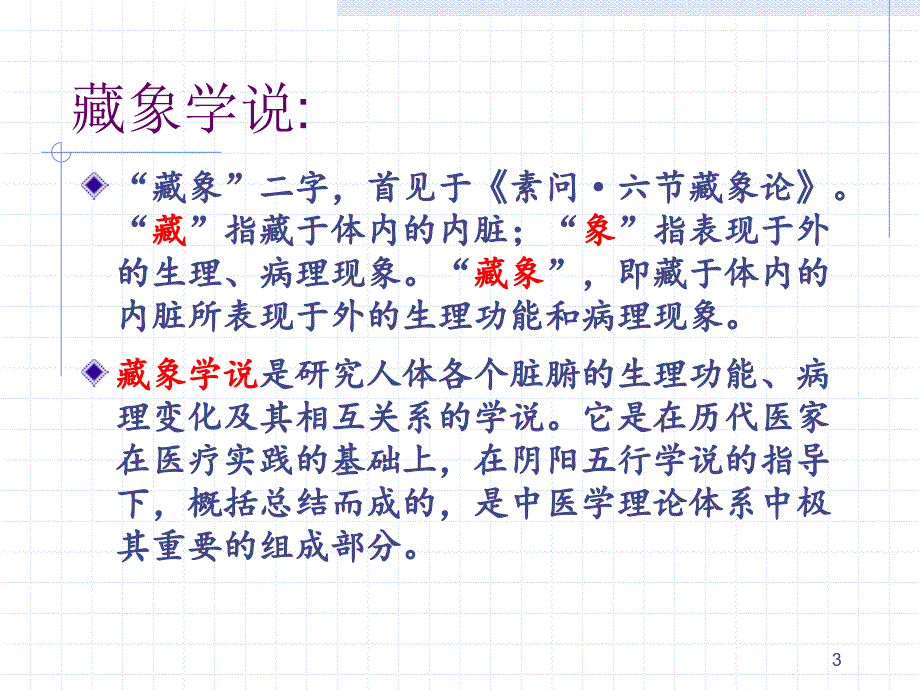 藏象学说:
“藏象”二字，首见于《素问·六节藏象论》。
“藏”指藏于体内的内脏；“象”指表现于外
的生理、病理现象。“藏象”，即藏于体内的
内脏所表现于外的生理功能和病理现象。
藏象学说是研究人体各个脏腑的生理功能、病
理变化及其相互关系的学说。它是在历代医家
在医疗实践的基础上，在阴阳五行学说的指导
下，概括总结而成的，是中医学理论体系中极
其重要的组成部分。
3